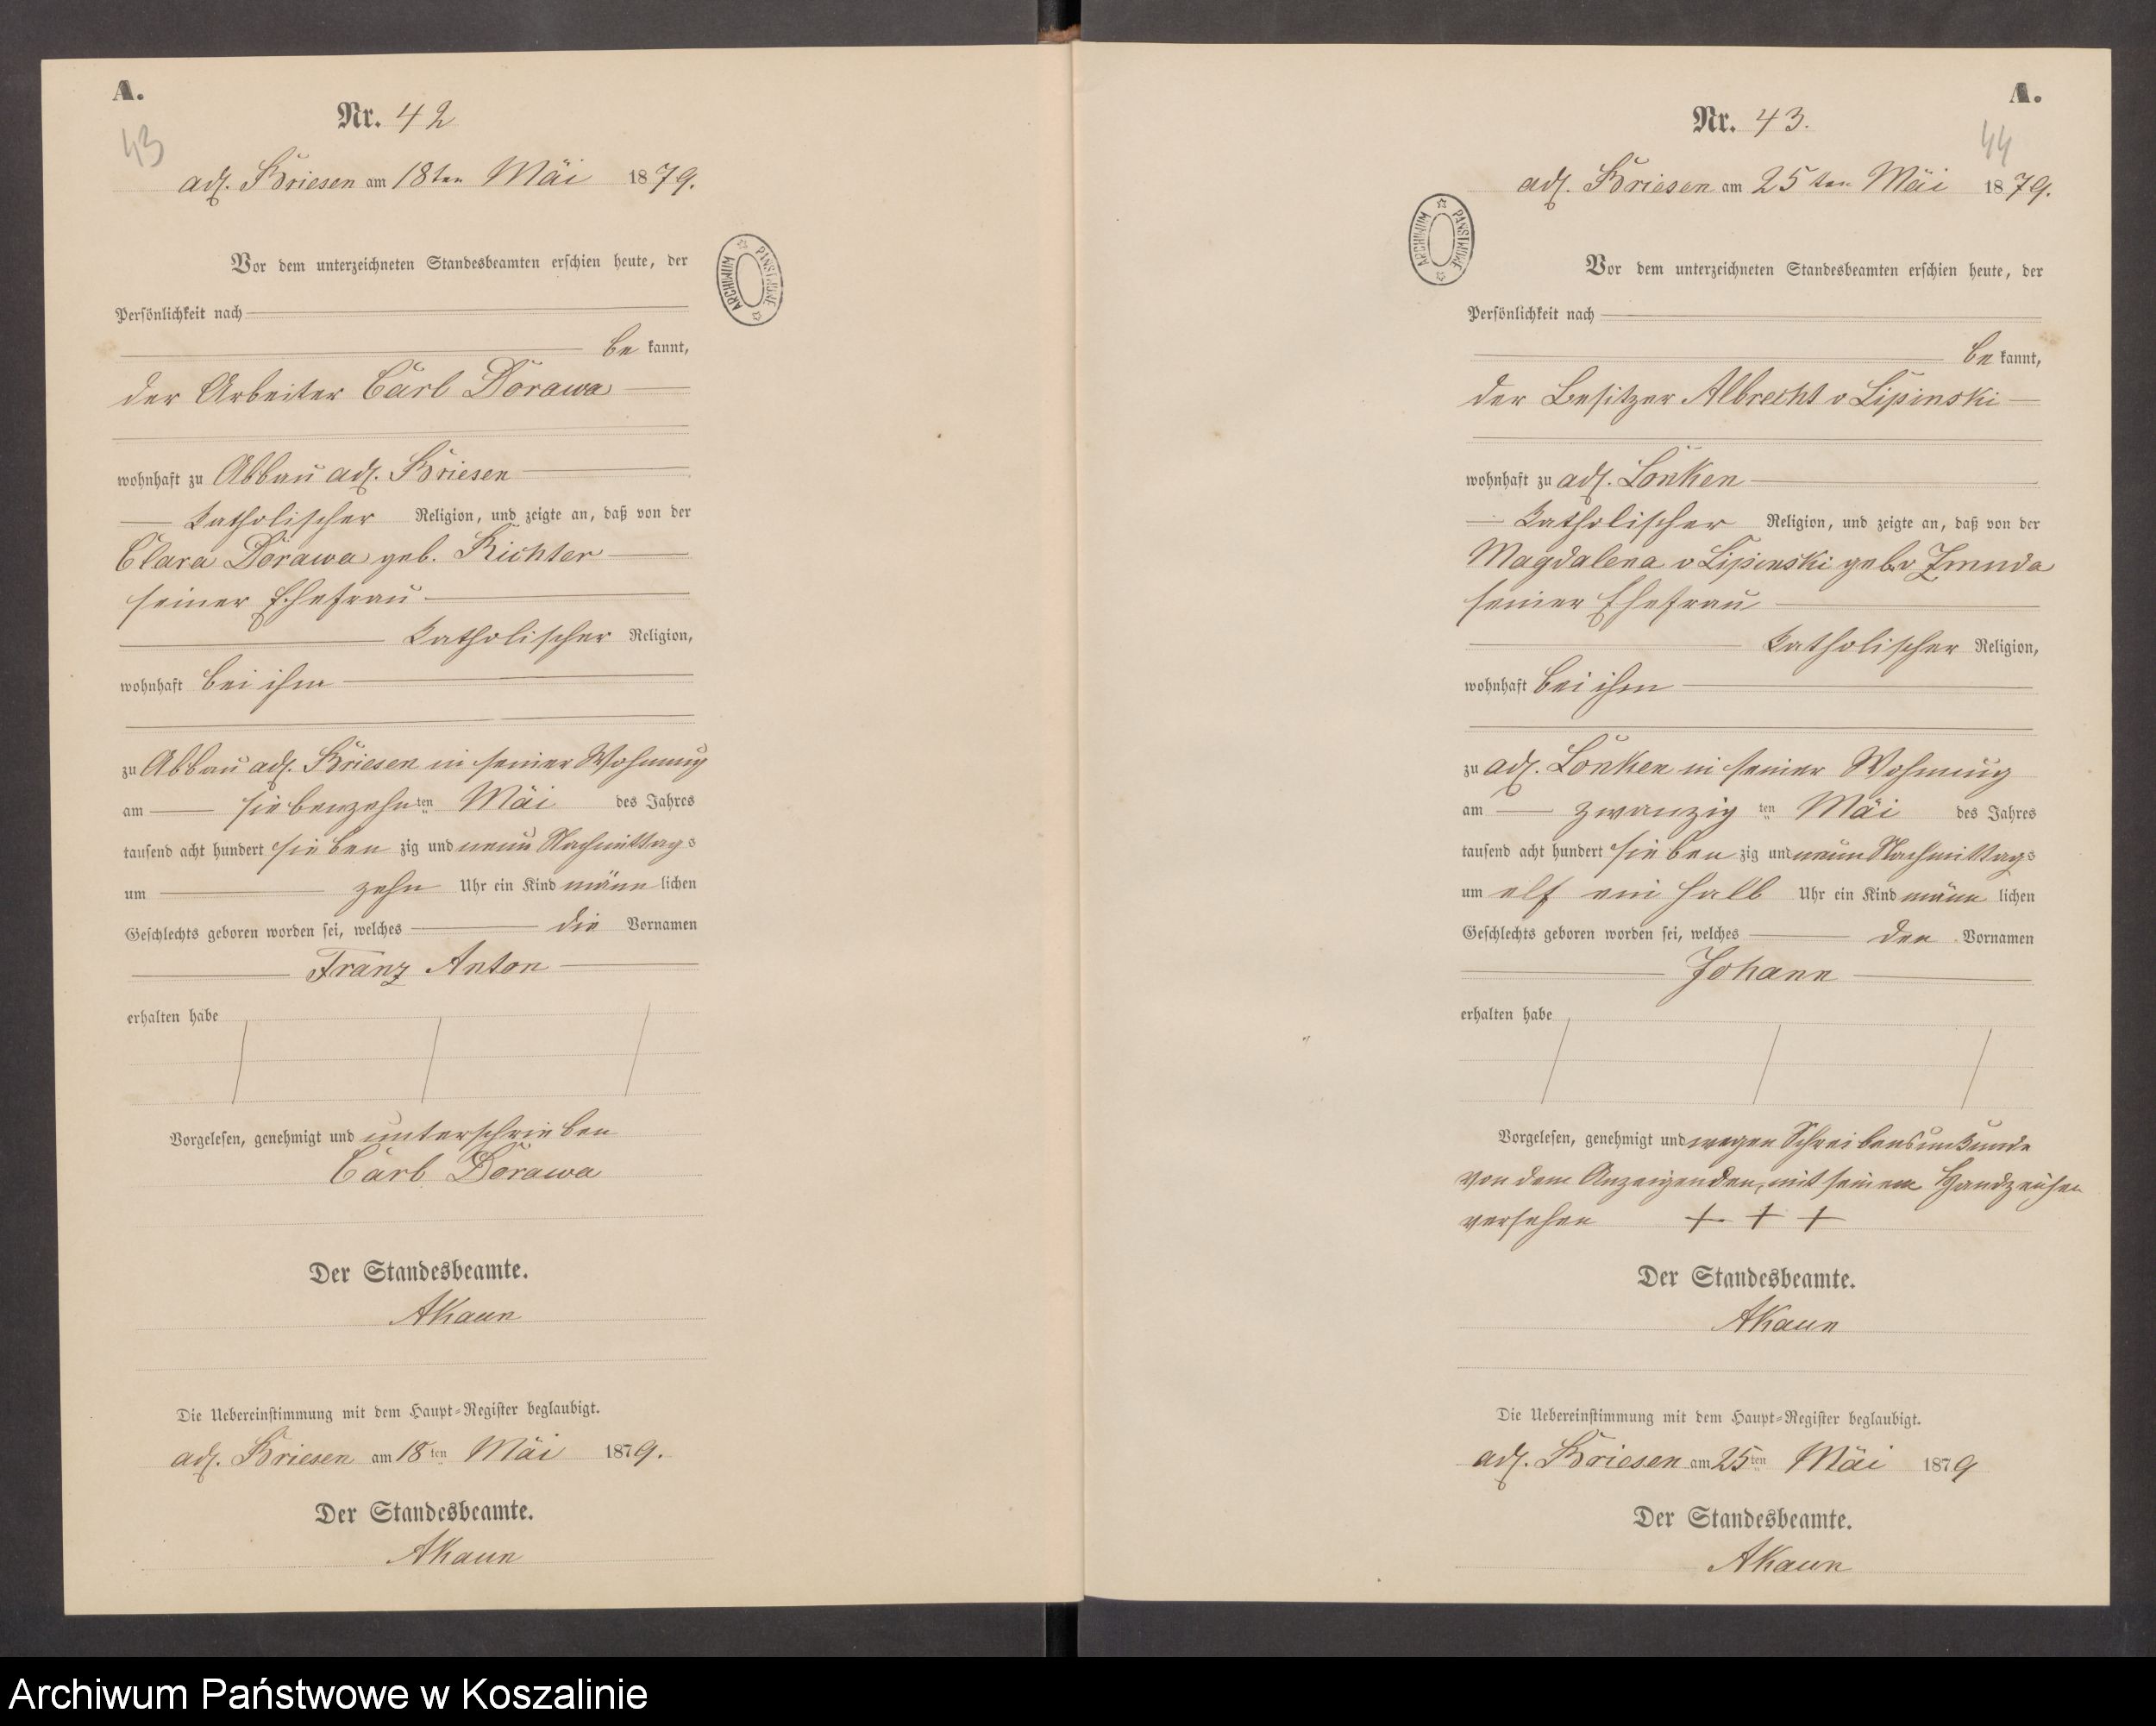 A.
Nr. 42
43
adl. Briesen am 18ten Mäi 1879.
Vor dem unterzeichneten Standesbeamten erschien heute, der
Persönlichkeit nach
be kannt,
der Arbeiter Carl Dorawa
wohnhaft zu Abbau adl. Briesen
katholischer Religion, und zeigte an, daß von der
Clara Dorawa geb. Richter
seiner Ehefrau
katholischer Religion,
wohnhaft bei ihm
zu Abbau adl. Briesen in seiner Wohnung
am siebenzehnten Mäi des Jahres
tausend acht hundert sieben zig und neun Nachmittags
um zehn Uhr ein Kind männ lichen
Geschlechts geboren worden sei, welches die Vornamen
Franz Anton
erhalten habe
Vorgelesen, genehmigt und unterschrieben
Carl Dorawa
Der Standesbeamte.
AKaun
Die Uebereinstimmung mit dem Haupt-Register beglaubigt.
adl. Briesen am 18ten Mäi 1879.
Der Standesbeamte.
AKaun
ARCHIWUM PAŃSTWOWE
A.
Nr. 43.
44
adl. Briesen am 25ten Mäi 1879.
ARCHIWUM PAŃSTWOWE
Vor dem unterzeichneten Standesbeamten erschien heute, der
Persönlichkeit nach
be kannt,
der Besitzer Albrecht v Lipinski
wohnhaft zu adl. Lonken
katholischer Religion, und zeigte an, daß von der
Magdalena v Lipinski geb. v Zmuda
seiner Ehefrau
katholischer Religion,
wohnhaft bei ihm
zu adl. Lonken in seiner Wohnung
am zwanzig ten Mäi des Jahres
tausend acht hundert sieben zig und neun Nachmittags
um elf ein halb Uhr ein Kind männ lichen
Geschlechts geboren worden sei, welches den Vornamen
Johann
erhalten habe
Vorgelesen, genehmigt und wegen Schreibensunkunde
von dem Anzeigenden, mit seinem Handzeichen
versehen + + +
Der Standesbeamte.
AKaun
Die Uebereinstimmung mit dem Haupt-Register beglaubigt.
adl. Briesen am 25ten Mäi 1879
Der Standesbeamte.
AKaun
Archiwum Państwowe w Koszalinie